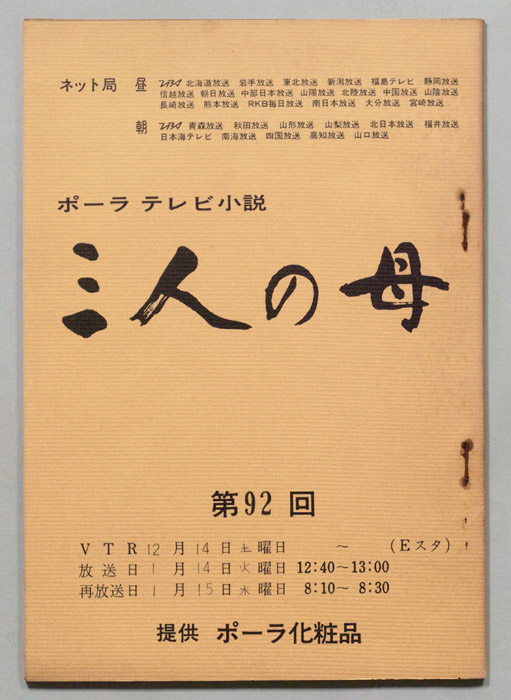 ネット局 昼 TBS 北海道放送 岩手放送 東北放送 新潟放送 福島テレビ 静岡放送
信越放送 朝日放送 中部日本放送 山陽放送 北陸放送 中国放送 山陰放送
長崎放送 熊本放送 RKB毎日放送 南日本放送 大分放送 宮崎放送
朝 TBS 青森放送 秋田放送 山形放送 山梨放送 北日本放送 福井放送
日本海テレビ 南海放送 四国放送 高知放送 山口放送
ポーラ テレビ小説
三人の母
第92回
VTR 12月14日 土曜日 ～ (Eスタ)
放送日 1月14日 火曜日 12:40～13:00
再放送日 1月15日 水曜日 8:10～ 8:30
提供 ポーラ化粧品